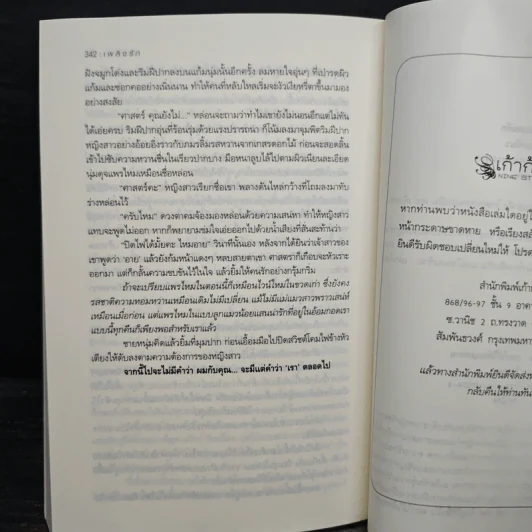 342 : เพลิงรัก
ฝังจมูกโด่งและริมฝีปากลงบนแก้มนุ่มนั้นอีกครั้ง ลมหายใจอุ่นๆ ที่เป่ารดผิว
แก้มและซอกคออย่างเนิ่นนาน ทำให้คนที่หลับใหลเริ่มจะงัวเงียหรี่ตาขึ้นมามอง
อย่างสงสัย
"ศาสตร์ คุณยังไม่..." หล่อนจะถามว่าทำไมเขายังไม่นอนอีกแต่ไม่ทัน
ได้เอ่ยครบ ริมฝีปากอุ่นที่ร้อนรุ่มด้วยแรงปรารถนา ก็โน้มลงมาจุมพิตริมฝีปาก
หญิงสาวอย่างอ้อยอิ่งราวกับภมรลิ้มรสหวานจากเกสรดอกไม้ ก่อนจะสอดลิ้น
เข้าไปซับความหวานชื่นในเรียวปากบาง มือหนาลูบไล้ไปตามผิวเนียนละเอียด
นุ่มดุจแพรไหมเหมือนชื่อหล่อน
"ศาสตร์คะ" หญิงสาวเรียกชื่อเขา พลางดันไหล่กว้างที่โถมลงมาทับ
ร่างหล่อนไว้
"ครับไหม" ดวงตาคมจ้องมองหล่อนด้วยความเสน่หา ทำให้หญิงสาว
แทบจะพูดไม่ออก หากก็พยายามข่มใจเอ่ยออกไปด้วยน้ำเสียงที่สั่นสะท้านว่า
"ปิดไฟได้มั้ยคะ ไหมอาย" วินาทีนั้นเอง หลังจากได้ยินว่าเจ้าสาวของ
เขาพูดว่า 'อาย' แล้วยังก้มหน้าแดงๆ หลบสายตาเขา ศาสตราก็เกือบจะหัวเราะ
ออกมา แต่ก็กลั้นความขบขันไว้ในใจ แล้วยิ้มให้คนรักอย่างกรุ้มกริ่ม
ถ้าจะเปรียบแพรไหมในตอนนี้ก็เหมือนไวน์ใหม่ในขวดเก่า ซึ่งยังคง
รสชาติความหอมหวานเหมือนเดิมไม่มีเปลี่ยน แม้ไม่มีแม่แมวสาวพราวเสน่ห์
เหมือนเมื่อก่อน แต่แพรไหมในแบบลูกแมวน้อยแสนน่ารักที่อยู่ในอ้อมกอดเรา
แบบนี้ทุกคืนก็เพียงพอสำหรับเราแล้ว
ชายหนุ่มคิดแล้วยิ้มที่มุมปาก ก่อนเอื้อมมือไปปิดสวิตช์โคมไฟข้างหัว
เตียงให้ดับลงตามความต้องการของหญิงสาว
จากนี้ไปจะไม่มีคำว่า ผมกับคุณ... จะมีแต่คำว่า 'เรา' ตลอดไป
เก้าก้
NINE ST
หากท่านพบว่าหนังสือเล่มใดอยู่ใ
หน้ากระดาษขาดหาย หรือเรียงสลั
ยินดีรับผิดชอบเปลี่ยนใหม่ให้ โปรด
สำนักพิมพ์เก้าก้
868/96-97 ชั้น 9 อาคา
ซ.วานิช 2 ถ.ทรงวาด
สัมพันธวงศ์ กรุงเทพมหา
แล้วทางสำนักพิมพ์ยินดีจัดส่งห
กลับคืนให้ท่านทัน